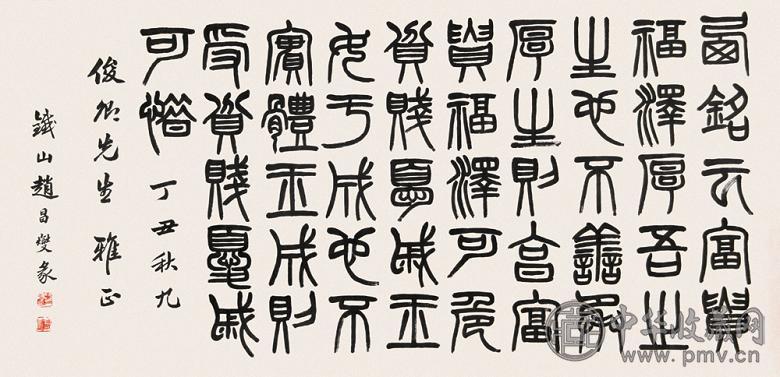 西銘云富貴
福澤厚吾之
生也不善承
厚生則享富
貴福澤可危
貧賤憂戚玉
女于成也不
實體玉成則
受貧賤憂戚
可惜 丁丑秋九
俊卿先生 雅正
鐵山趙昌燮篆
中华收藏网
www.pmv.cn